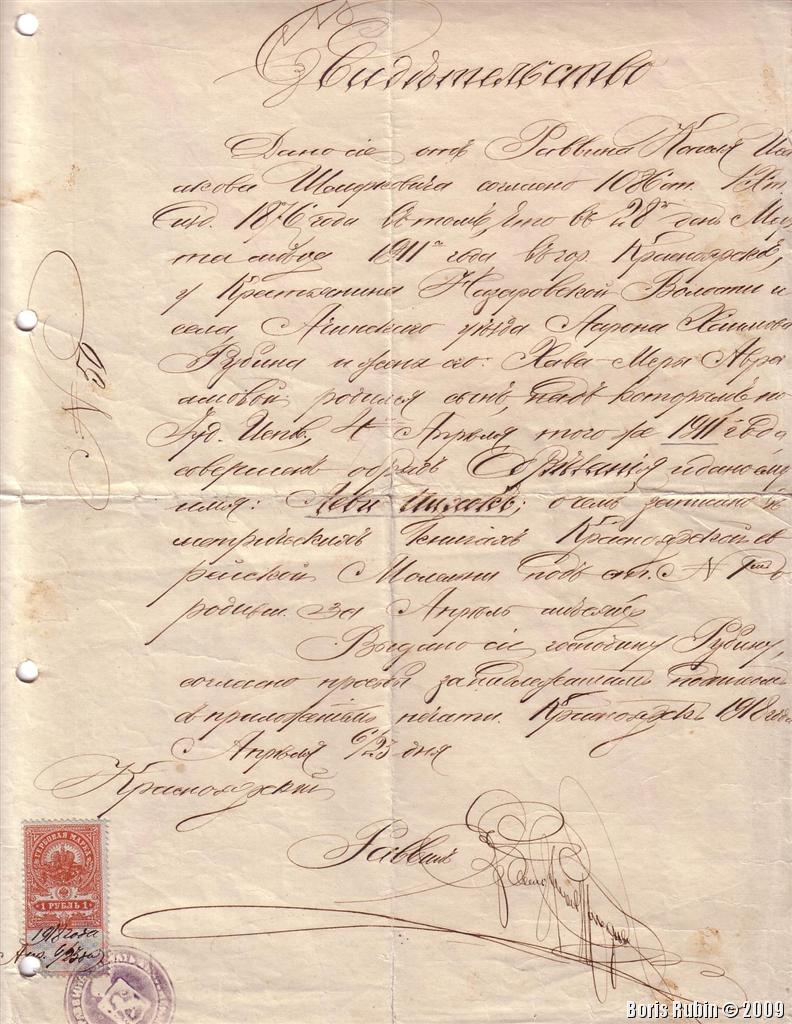 Свидѣтельство
Дано сіе отъ Раввина
согласно 1086 ст.
1876 года въ томъ, что въ 28й день Мар
та мѣсяца 1911го года въ гор. Красноярскѣ,
у Крестьянина Назаровской Волости и
села Ачинского уѣзда Аарона Хаимова
Рубина и жены его: Хава-Меры Авра
амовой родился сынъ, надъ которымъ по
Іуд. Испв., 4 Апрѣля того же 1911 года
совершенъ обрядъ Обрѣзанія и дано ему
имя: Леви Ицхокъ; о чемъ записано въ
метрическихъ Книгахъ Красноярской ев
рейской Молельни подъ ст. N
родивш. за Апрѣль мѣсяцъ
Выдано сіе господину Рубину,
согласно просьбы за надлежащимъ подписомъ
и приложеніемъ печати. Красноярскъ 1918 года
Апрѣля 6/23 дня
Красноярскій
Раввинъ
ГЕРБОВАЯ МАРКА
1 РУБЛЬ 1
1918 года
Апр. 6/23 дня
Boris Rubin © 2009